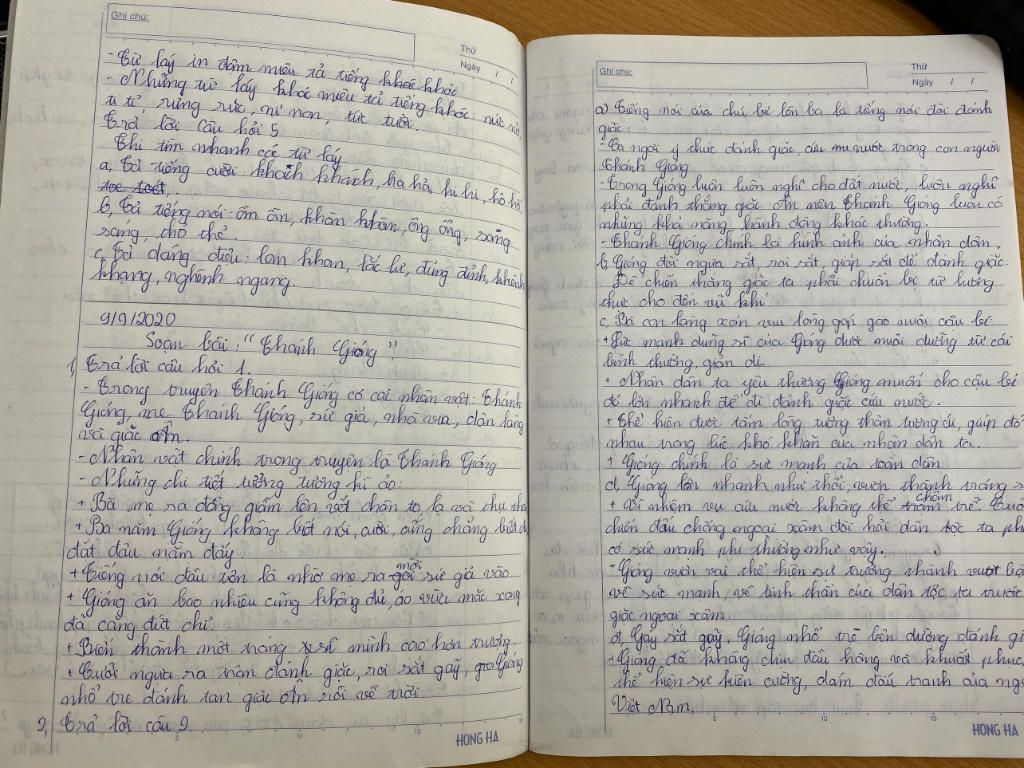 Ghi chú:
Thứ
Ngày / /
- Từ láy in đậm miêu tả tiếng khóc
- Những từ láy khác miêu tả tiếng khóc: nức nở,
ti tỉ, rưng rức, nỉ non, tức tưởi.
Trả lời câu hỏi 5
Thi tìm nhanh các từ láy
a, Tả tiếng cười: khanh khách, ha hả, hi hi, hô hố,
b, Tả tiếng nói: ồm ồm, khàn khàn, ông ổng, sang
sang, thỏ thẻ
c, Tả dáng điệu: lom khom, lắc lư, đủng đỉnh, khệnh
khạng, nghênh ngang.
9/9/2020
Soạn bài: "Thánh Gióng"
1, Trả lời câu hỏi 1.
- Trong truyện Thánh Gióng có các nhân vật: Thánh
Gióng, mẹ Thánh Gióng, sứ giả, nhà vua, dân làng
và giặc Ân.
- Nhân vật chính trong truyện là Thánh Gióng
- Những chi tiết tưởng tượng kì ảo:
+ Bà mẹ ra đồng giẫm lên vết chân to, lạ và thụ tha
+ Ba năm Gióng không biết nói, cười, cũng chẳng biết đi
đặt đâu nằm đấy
+ Tiếng nói đầu tiên là nhờ mẹ ra mời sứ giả vào
+ Gióng ăn bao nhiêu cũng không đủ, áo vừa mặc xong
đã căng đứt chỉ
+ Biến thành một tráng sĩ mình cao hơn trượng
+ Cưỡi ngựa ra trận đánh giặc, roi sắt gãy, Gióng
nhổ tre đánh tan giặc Ân rồi về trời
2, Trả lời câu 2.
5 10 15
HONG HA
Ghi chú:
Thứ
Ngày / /
a) Tiếng nói của chú bé lên ba là tiếng nói đòi đánh
giặc:
- Ca ngợi ý thức đánh giặc, cứu nước trong con người
Thánh Gióng
- Trong Gióng luôn luôn nghĩ cho đất nước, luôn nghĩ
phải đánh thắng giặc Ân nên Thánh Gióng luôn có
những khả năng hành động khác thường.
- Thánh Gióng chính là hình ảnh của nhân dân.
b, Gióng đòi ngựa sắt, roi sắt, giáp sắt để đánh giặc:
Để chiến thắng giặc ta phải chuẩn bị từ lương
thực cho đến vũ khí
c, Bà con làng xóm vui lòng góp gạo nuôi cậu bé
+ Sức mạnh dũng sĩ của Gióng được nuôi dưỡng từ cái
bình thường, giản dị.
+ Nhân dân ta yêu thương Gióng muốn cho cậu bé
đó lớn nhanh để đi đánh giặc cứu nước.
+ Thể hiện được tấm lòng tương thân tương ái, giúp đỡ
nhau trong lúc khó khăn của nhân dân ta.
+ Gióng chính là sức mạnh của toàn dân
d, Gióng lớn nhanh như thổi, vươn thành tráng s
+ Vì nhiệm vụ cứu nước không thể chậm trễ. Cuộ
chiến đấu chống ngoại xâm đòi hỏi dân tộc ta ph
có sức mạnh phi thường như vậy.
- Gióng vươn vai thể hiện sự trưởng thành vượt bậ
về sức mạnh, về tinh thần của dân tộc ta trước
giặc ngoại xâm.
đ, Gậy sắt gãy, Gióng nhổ tre bên đường đánh gi
+ Gióng đã không chịu đầu hàng và khuất phục,
thể hiện sự kiên cường, dám đấu tranh của ng
Việt Nam.
5 10 15
HONG HA